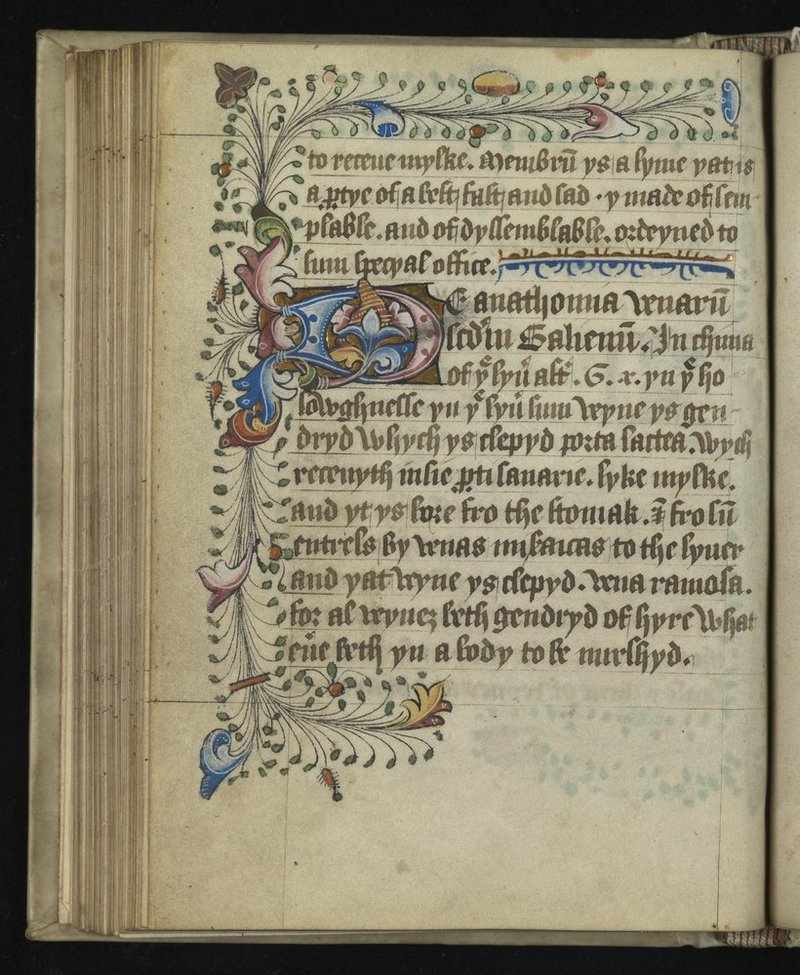 to receue mylke. Membrū ys a lyme yat is
a ptye of a best, fast and sad . y made of sem
plable. and of dyssemblable. ordeyned to
sum specyal office.
DE anathomia venarū
scd'm Galienū. In chima
of yͤ lyū aft. G. x. yn yͤ ho
lowghnesse yn yͤ lyū sum veyne ys gen
dryd whych ys clepyd porta lactea. wych
receuyth m sanarie. lyke mylke.
and yt ys bore fro the stomak. ⁊ fro sū
entrels by venas to the lyuer
and yat veyne ys clepyd. vena ramosa.
for al veynez beth gendryd of hyre what
eūe beth yn a body to be nurshyd.